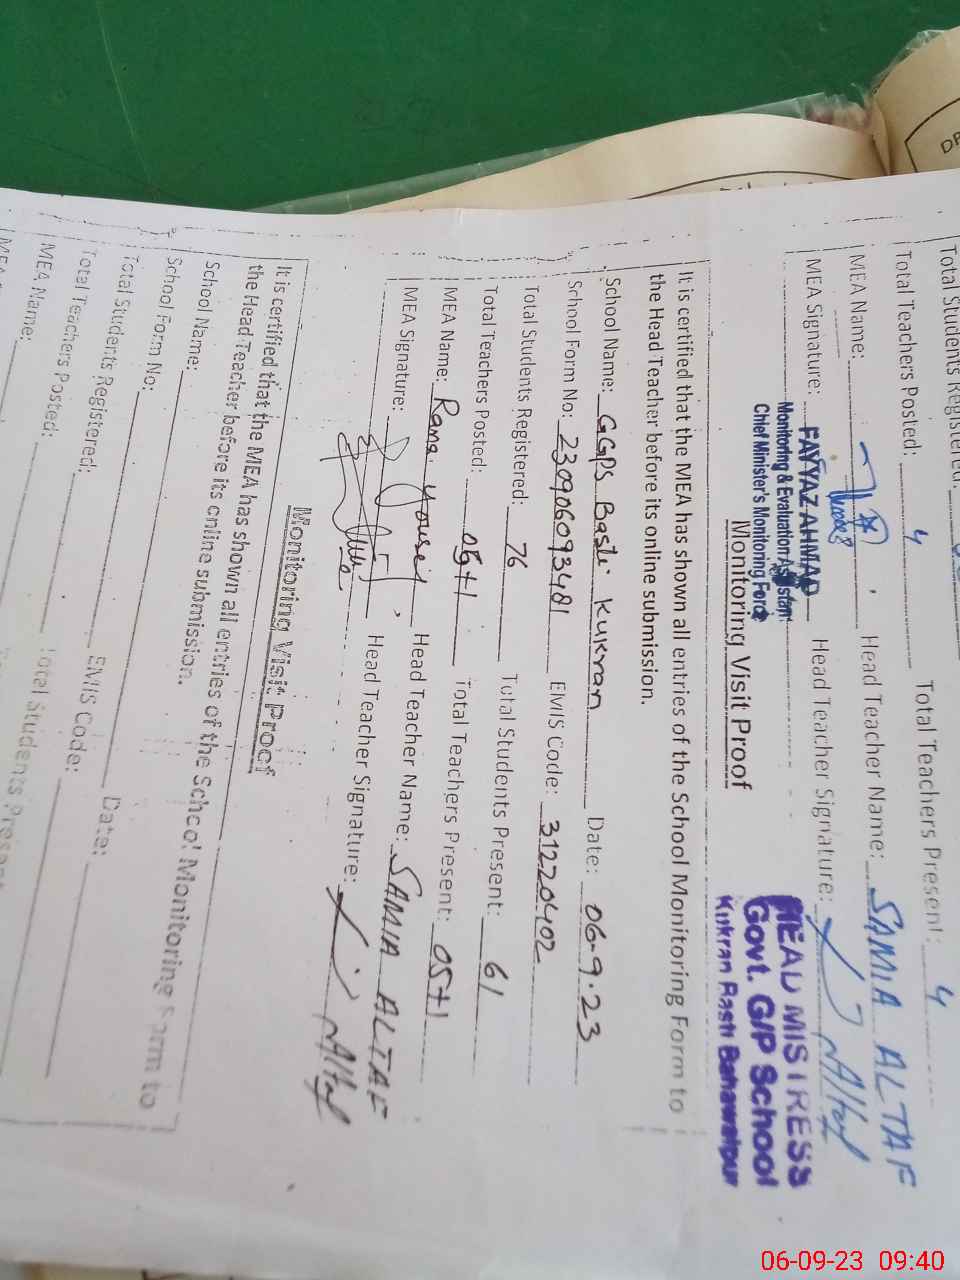 Total Students Registered:
Total Teachers Posted: 4 Total Teachers Present: 4
MEA Name: Head Teacher Name: SAMIA ALTAF
MEA Signature: FAYYAZ AHMAD Head Teacher Signature: Altaf
Monitoring & Evaluation Assistant
Chief Minister's Monitoring Force
HEAD MISTRESS
Govt. G/P School
Kukran Basti Bahawalpur
Monitoring Visit Proof
It is certified that the MEA has shown all entries of the School Monitoring Form to
the Head Teacher before its online submission.
School Name: GGPS Basti Kukran Date: 06-9-23
School Form No: 230906093481 EMIS Code: 31220402
Total Students Registered: 76 Total Students Present: 61
Total Teachers Posted: 05+1 Total Teachers Present: 05+1
MEA Name: Rana Yousif Head Teacher Name: SAMIA ALTAF
MEA Signature: Head Teacher Signature: Altaf
Monitoring Visit Proof
It is certified that the MEA has shown all entries of the School Monitoring Form to
the Head Teacher before its online submission.
School Name:
School Form No: EMIS Code: Date:
Total Students Registered: Total Students Present
Total Teachers Posted:
MEA Name:
MEA
DR
06-09-23 09:40